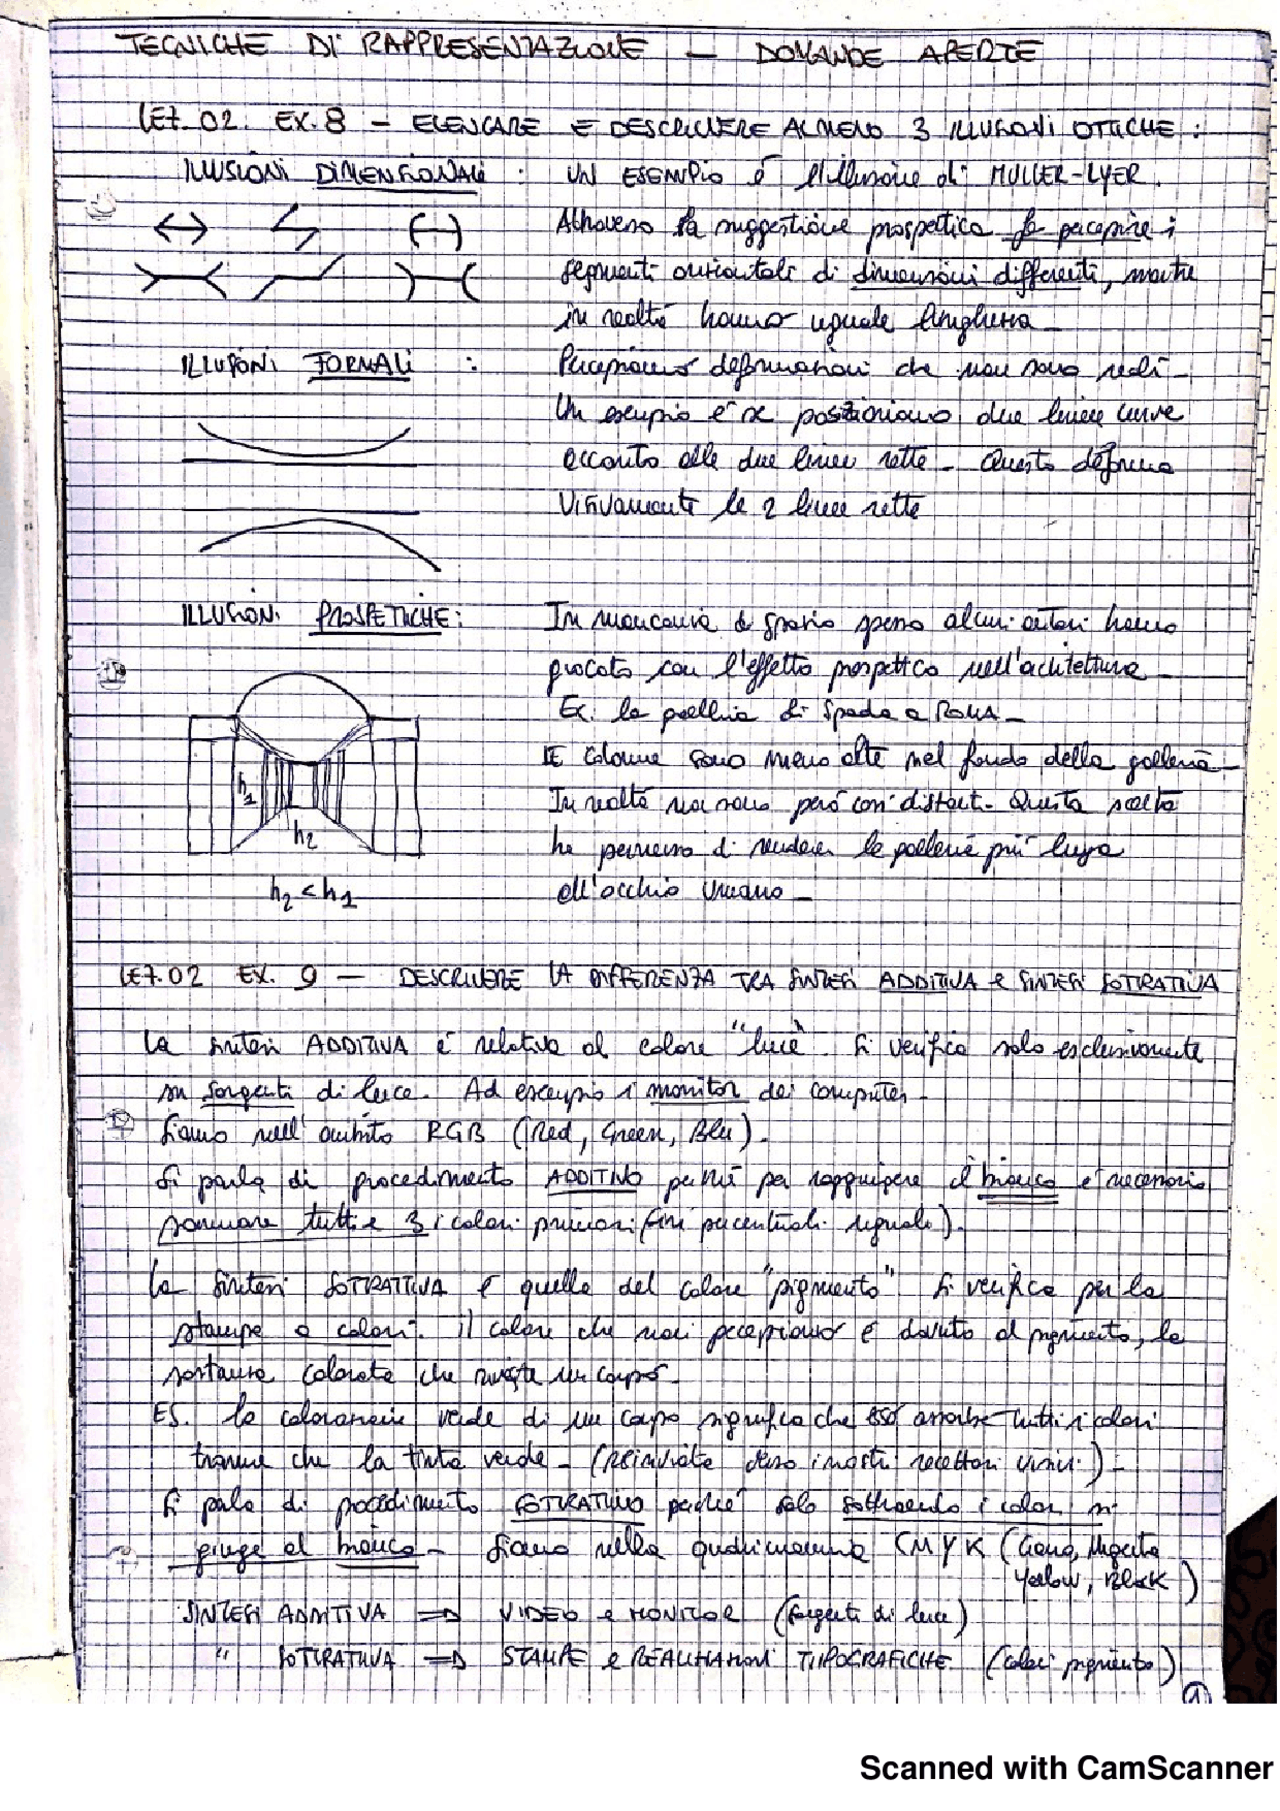 TECNICHE DI RAPPRESENTAZIONE — DOMANDE APERTE
LEZ. 02 EX. 8 - ELENCARE E DESCRIVERE ALMENO 3 ILLUSIONI OTTICHE :
ILLUSIONI DIMENSIONALI : UN ESEMPIO é l'illusione di MULLER-LYER.
Attraverso la suggestione prospettica fa percepire i
segmenti orizzontali di dimensioni differenti, mentre
in realtà hanno uguale lunghezza -
ILLUSIONI FORMALI : Percepiamo deformazioni che non sono reali -
Un esempio é se posizioniamo due linee curve
accanto alle due linee rette - Questo deforma
visivamente le 2 linee rette
ILLUSIONI PROSPETTICHE: In mancanza di spazio spesso alcuni autori hanno
giocato con l'effetto prospettico nell'architettura -
Ex. la galleria di Spada a ROMA -
LE colonne sono meno alte nel fondo della galleria -
In realtà non sono però così distanti - Questa scelta
ha permesso di rendere la galleria più lunga
all'occhio umano -
h1
h2
h2 < h1
LEZ. 02 EX. 9 — DESCRIVERE LA DIFFERENZA TRA SINTESI ADDITIVA e SINTESI SOTTRATIVA
La sintesi ADDITIVA é relativa al colore "luce". Si verifica solo esclusivamente
su sorgenti di luce. Ad esempio i monitor dei computer -
Siamo nell'ambito RGB (Red, Green, Blu).
Si parla di procedimento ADDITIVO perché per raggiungere il bianco é necessario
sommare tutti e 3 i colori primari (in percentuali uguali).
La sintesi SOTTRATTIVA é quella del colore "pigmento" Si verifica per la
stampa a colori. il colore che noi percepiamo é dovuto al pigmento, la
sostanza colorata che riveste un corpo -
ES. la colorazione verde di un corpo significa che esso assorbe tutti i colori
tranne che la tinta verde - (reinviata verso i nostri recettori visivi) -
Si parla di procedimento SOTTRATTIVO perché solo sottraendo i colori si
giunge al bianco - Siamo nella quadricromia CMYK (Ciano, Magenta
Yellow, Black)
SINTESI ADDITIVA ⇒ VIDEO e MONITOR (sorgenti di luce)
" SOTTRATTIVA ⇒ STAMPE e REALIZZAZIONI TIPOGRAFICHE (colori pigmento)
1
Scanned with CamScanner